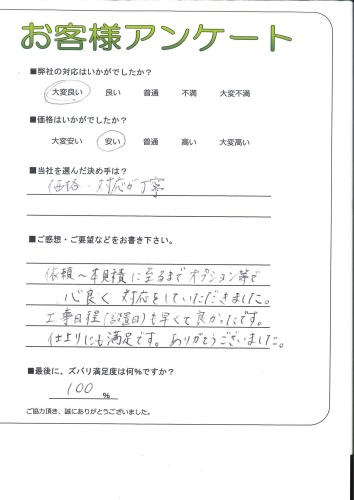 お客様アンケート
■弊社の対応はいかがでしたか？
大変良い 良い 普通 不満 大変不満
■価格はいかがでしたか？
大変安い 安い 普通 高い 大変高い
■当社を選んだ決め手は？
価格・対応が丁寧
■ご感想・ご要望などをお書き下さい。
依頼～本見積に至るまでオプション等で
心良く対応をしていただきました。
工事日程(設置日)も早くて良かったです。
仕上りにも満足です。ありがとうございました。
■最後に、ズバリ満足度は何%ですか？
100 %
ご協力頂き、誠にありがとうございました。